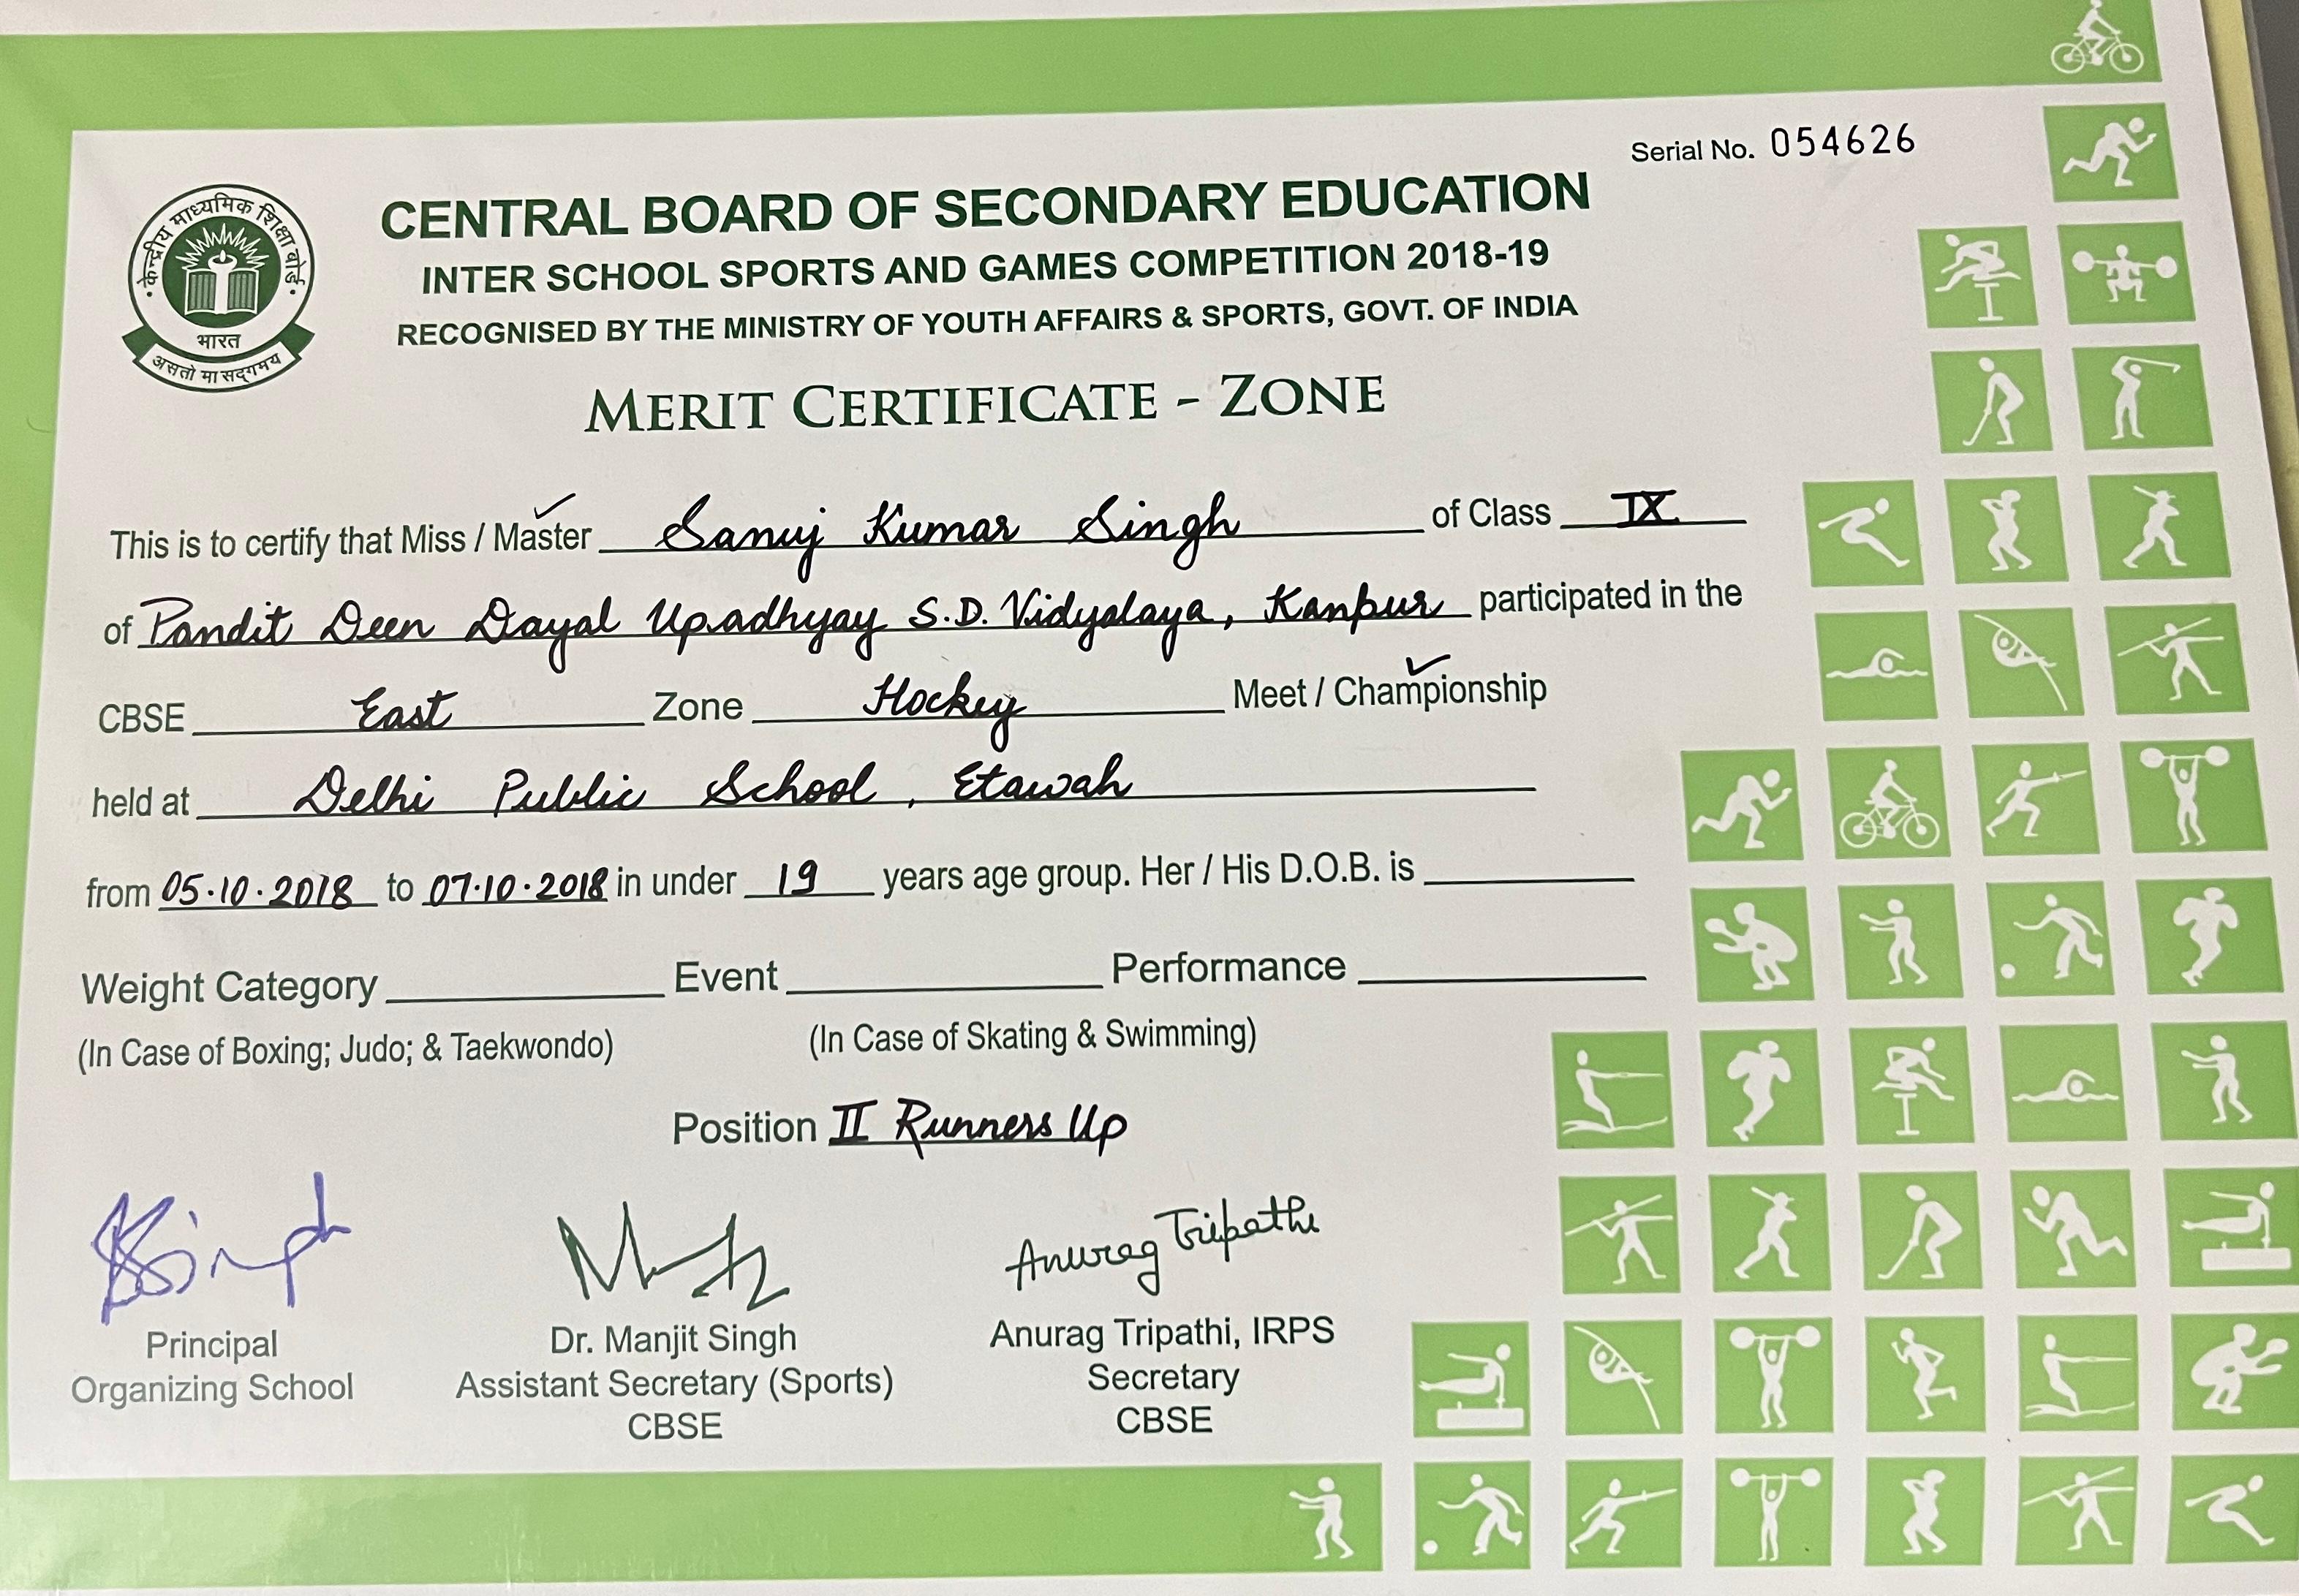 Serial No. 054626
केन्द्रीय माध्यमिक शिक्षा बोर्ड
भारत
असतो मा सद्गमय
CENTRAL BOARD OF SECONDARY EDUCATION
INTER SCHOOL SPORTS AND GAMES COMPETITION 2018-19
RECOGNISED BY THE MINISTRY OF YOUTH AFFAIRS & SPORTS, GOVT. OF INDIA
MERIT CERTIFICATE - ZONE
This is to certify that Miss / Master Sanuj Kumar Singh of Class IX
of Pandit Deen Dayal Upadhyay S.D. Vidyalaya, Kanpur participated in the
CBSE East Zone Hockey Meet / Championship
held at Delhi Public School, Etawah
from 05.10.2018 to 07.10.2018 in under 19 years age group. Her / His D.O.B. is
Weight Category Event Performance
(In Case of Boxing; Judo; & Taekwondo) (In Case of Skating & Swimming)
Position II Runners Up
Singh
Anurag Tripathi
Principal
Organizing School
Dr. Manjit Singh
Assistant Secretary (Sports)
CBSE
Anurag Tripathi, IRPS
Secretary
CBSE